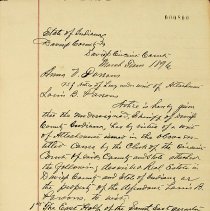 000800
State of Indiana
Daviess County ss
Daviess Circuit Court
March Term 1896
Anna V. Parsons
vs Notice of Levy under writ of Attachment
Louis B. Parsons
Notice is hereby given
that the undersigned Sheriff of
County Indiana, has by virtue of a writ
of Attachment issued in the above
titled cause by the Clerk of the Circuit
Court of said County and State attached
the following described Real Estate in
County and State of Indiana as
the property of the defendant Louis B.
Parsons, to wit:
1st The East Half of the South East quarter